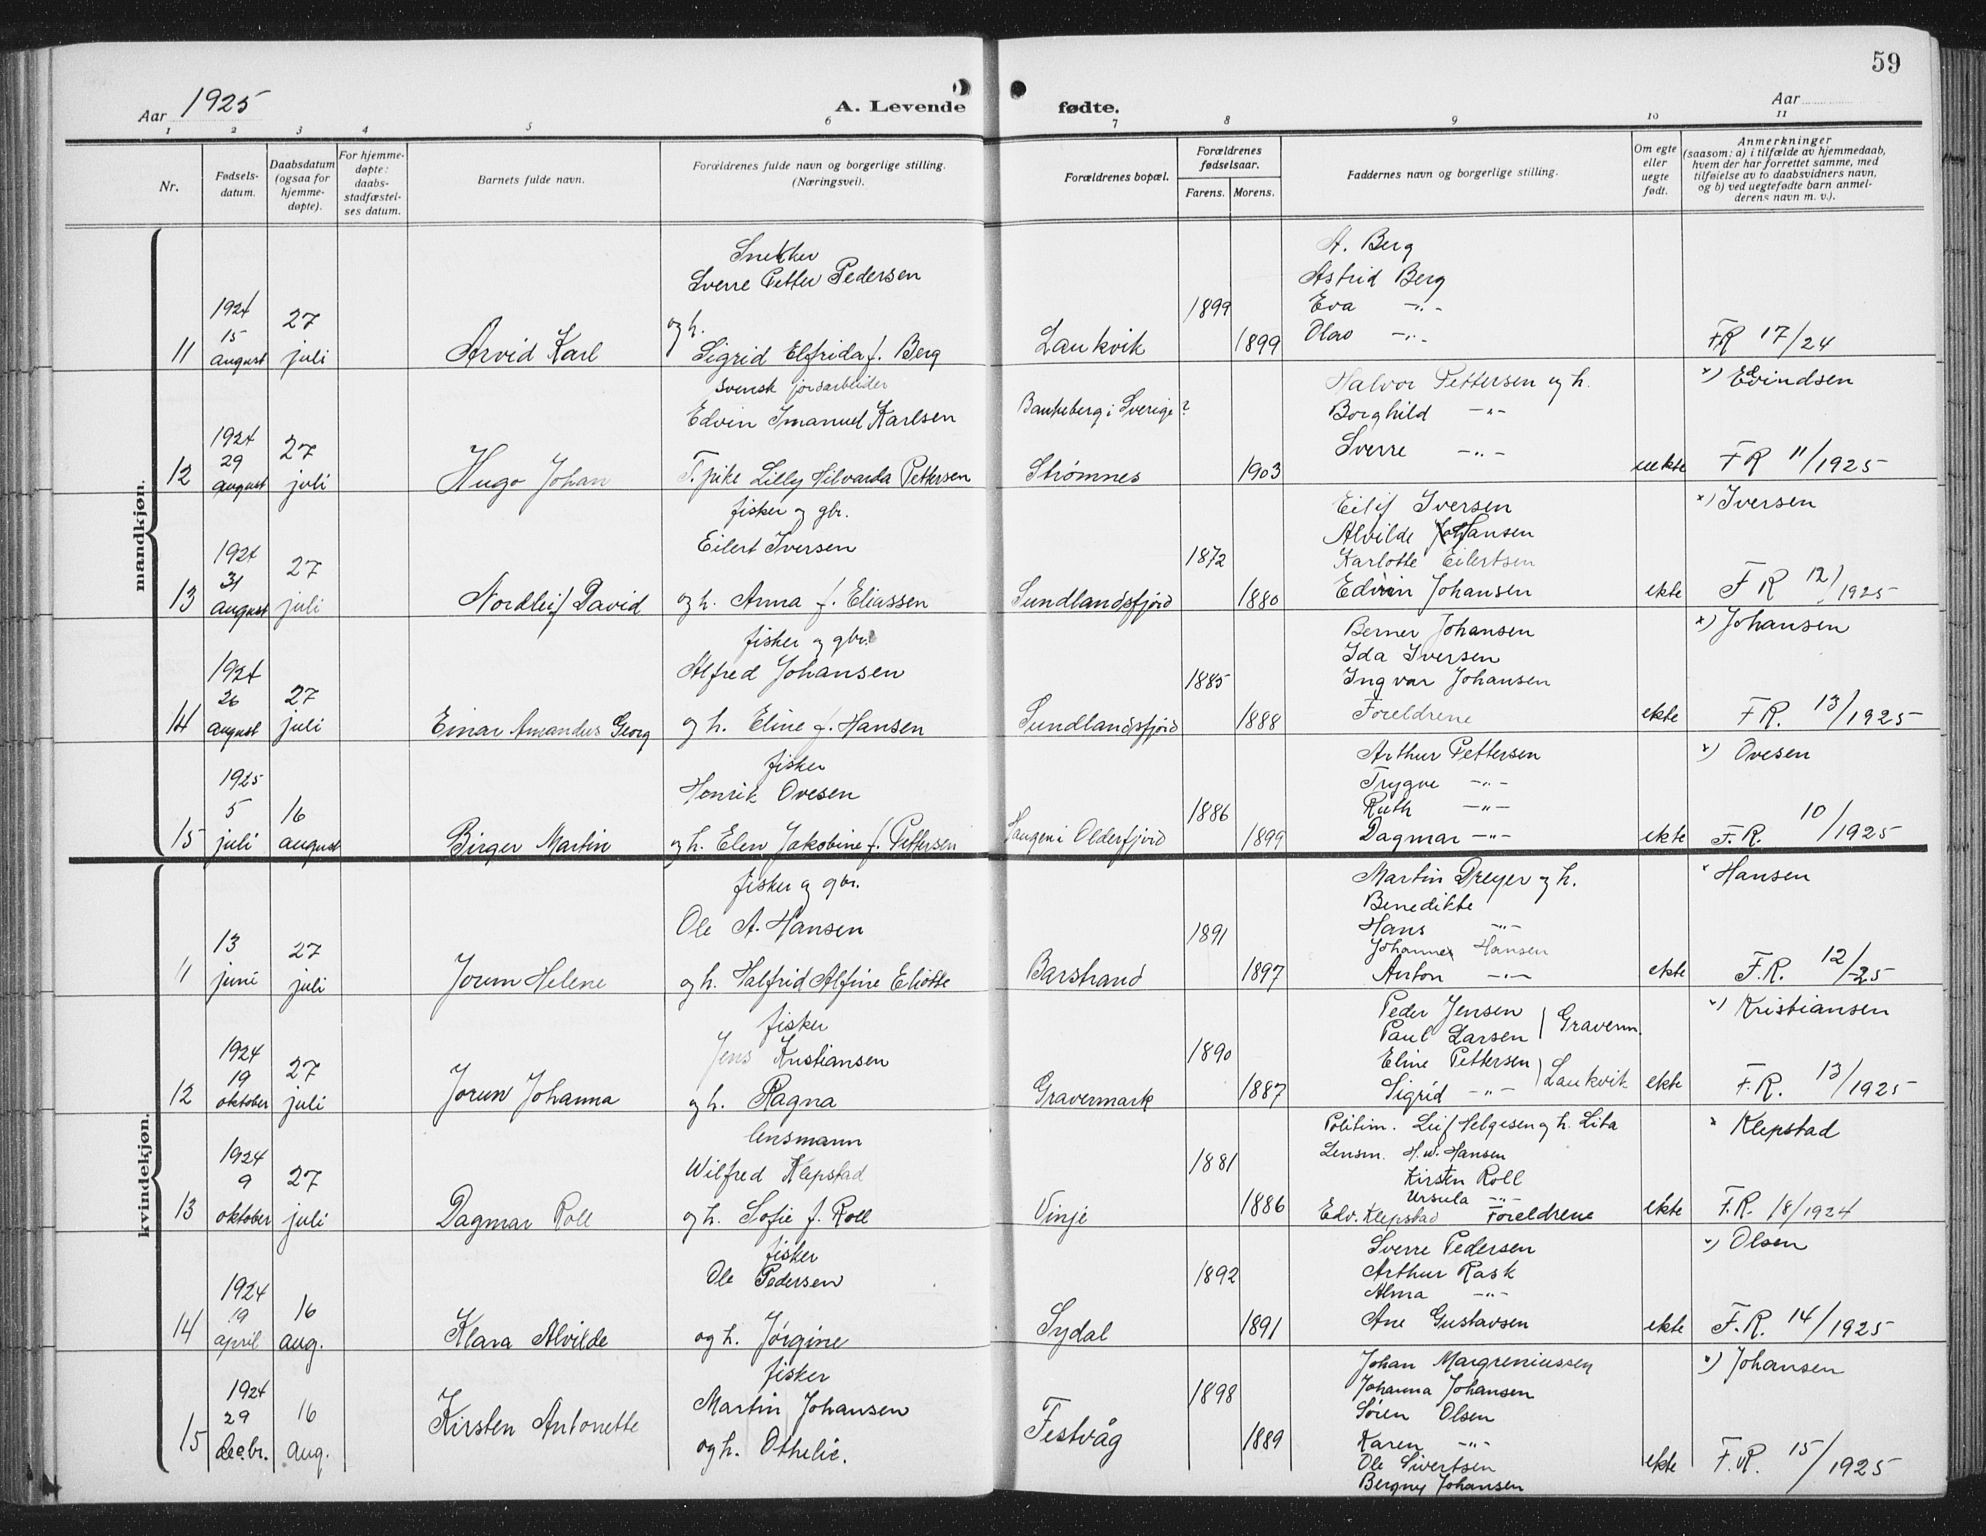 59
Aar 1925
A. Levende fødte.
Aar
1 2 3 4 5 6 7 8 9 10 11
Nr.
Fødsels-
datum.
Daabsdatum
(ogsaa for
hjemme-
døpte).
For hjemme-
døpte:
daabs-
stadfæstel-
ses datum.
Barnets fulde navn.
Forældrenes fulde navn og borgerlige stilling.
(Næringsvei).
Forældrenes bopæl.
Forældrenes
fødselsaar.
Farens. Morens.
Faddernes navn og borgerlige stilling.
Om egte
eller
uegte
født.
Anmerkninger
(saasom: a) i tilfælde av hjemmedaab,
hvem der har forrettet samme, med
tilføielse av to daabsvidners navn,
og b) ved uegtefødte barn anmel-
derens navn m. v.).
mandkjøn.
11
1924
15
august
27
juli
Arvid Karl
Snekker
Sverre Petter Pedersen
og h.
Sigrid Elfrida f. Berg
Laukvik
1899
1899
A. Berg
Astrid Berg
Eva -"-
Olav -"-
FR 17/24
12
1924
29
august
27
juli
Hugo Johan
svensk jordarbeider
Edvin Imanuel Karlsen
F. pike Lilly Hilvarda Pettersen
Bankeberg i Sverige?
Strømnes
1903
Halvor Pettersen og h.
Borghild -"-
Sverre -"-
uekte
x) Edvindsen
FR 11/1925
13
1924
31
august
27
juli
Nordleif David
fisker og gbr.
Eilert Iversen
og h. Anna f. Eliassen
Sundlandsfjord
1872
1880
Eilif Iversen
Alvilde Johansen
Karlotte Eilertsen
Edvin Johansen
ekte
x) Iversen
F R 12/1925
14
1924
26
august
27
juli
Einar Amandus Georg
fisker og gbr.
Alfred Johansen
og h. Eline f. Hansen
Sundlandsfjord
1885
1888
Berner Johansen
Ida Iversen
Ingvar Johansen
Foreldrene
ekte
x) Johansen
FR. 13/1925
15
1925
5
juli
16
august
Birger Martin
fisker
Henrik Ovesen
og h. Elen Jakobine f. Pettersen
Haugen i Olderfjord
1886
1899
Arthur Pettersen
Trygve -"-
Ruth -"-
Dagmar -"-
ekte
x) Ovesen
F.R. 10/1925
kvindekjøn.
11
13
juni
27
juli
Jorun Helene
fisker og gbr.
Ole A. Hansen
og h. Halfrid Alfine Eliotte
Barstrand
1891
1897
Martin Dreyer og h.
Benedikte
Hans -"-
Johannes Hansen
Anton -"-
ekte
x Hansen
F.R. 12/-25
12
1924
19
oktober
27
juli
Jorun Johanna
fisker
Jens Kristiansen
og h. Ragna
Gravermark
1890
1887
Peder Jensen
Paul Larsen } Graverm.
Eline Pettersen
Sigrid -"- } Laukvik
ekte
x) Kristiansen
F.R. 13/1925
13
1924
9
oktober
27
juli
Dagmar Roll
lensmann
Wilfred Klepstad
og h. Sofie f. Roll
Vinje
1881
1886
Politim. Leif Helgesen og h. Lita
Lensm. H.W. Hansen
Kirsten Roll
Ursula -"-
Edv. Klepstad Foreldrene
ekte
x Klepstad
F.R. 18/1924
14
1924
19
april
16
aug.
Klara Alvilde
fisker
Ole Pedersen
og h. Jørgine
Sydal
1892
1891
Sverre Pedersen
Arthur Rask
Alma -"-
Ane Gustavsen
ekte
x) Olsen
F.R. 14/1925
15
1924
29
decbr.
16
aug.
Kirsten Antonette
fisker
Martin Johansen
og h. Othelie.
Festvåg
1898
1889
Johan Margreniussen
Johanna Johansen
Søren Olsen
Karen -"-
Ole Sivertsen
Bergny Johansen
ekte
x) Johansen
F.R. 15/1925